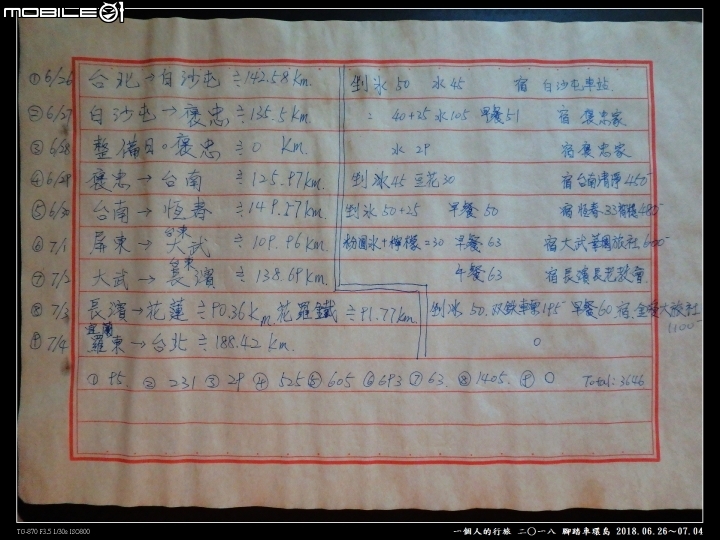 MOBILE01
①6/26 台北→白沙屯≒142.58Km. 剉冰50 水45 宿 白沙屯車站
②6/27 白沙屯→褒忠≒135.5Km. 40+25 水105 早餐51 宿 褒忠家
③6/28 整備日。褒忠≒0 Km. 水29 宿褒忠家
④6/29 褒忠→台南≒125.97Km. 剉冰45 豆花30 宿台南清淨450
⑤6/30 台南→恆春≒149.57Km. 剉冰50+25 早餐50 宿恆春33有棧480
⑥7/1 屏東→台東大武≒109.96Km. 粉圓冰+檸檬=30 早餐63 宿大武華園旅社600
⑦7/2 大武→台東長濱≒138.69Km. 午餐63 宿長濱長老教會
⑧7/3 長濱→花蓮≒90.36Km. 花羅鐵≒91.77Km. 剉冰50. 双鉄車票195 早餐60 宿.金城大旅社1100
⑨7/4 宜蘭羅東→台北≒188.42Km. 0
①95. ②231 ③29 ④525 ⑤605 ⑥693 ⑦63. ⑧1405. ⑨0 Total:3646
TG-870 F3.5 1/30s ISO800
一個人的行旅 二〇一八 腳踏車環島 2018.06.26~07.04